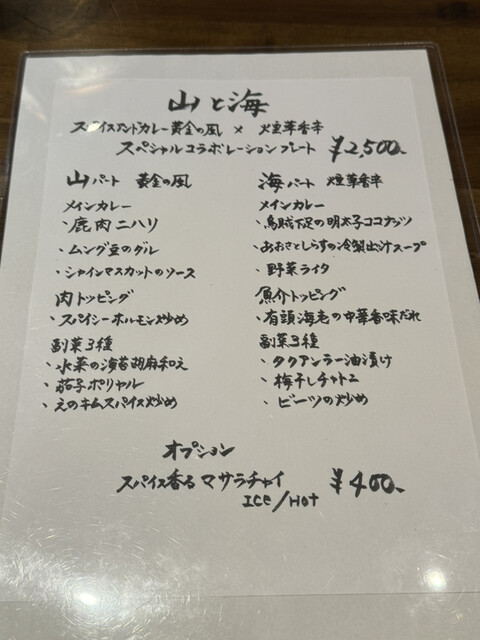 山と海
スパイスアンドカレー黄金の風 × 煙草香辛
スペシャルコラボレーションプレート ¥2,500-
山パート 黄金の風
メインカレー
・鹿肉ニハリ
・ムング豆のダル
・シャインマスカットのソース
肉トッピング
・スパイシーホルモン炒め
副菜3種
・水菜の海苔胡麻和え
・茄子ポリヤル
・えのキムスパイス炒め
海パート 煙草香辛
メインカレー
・烏賊下足の明太子ココナッツ
・あおさとしらすの冷製出汁スープ
・野菜ライタ
魚介トッピング
・有頭海老の中華香味だれ
副菜3種
・タクアンラー油漬け
・梅干しチャトニ
・ビーツの炒め
オプション
スパイス香るマサラチャイ ¥400-
ICE/HOT